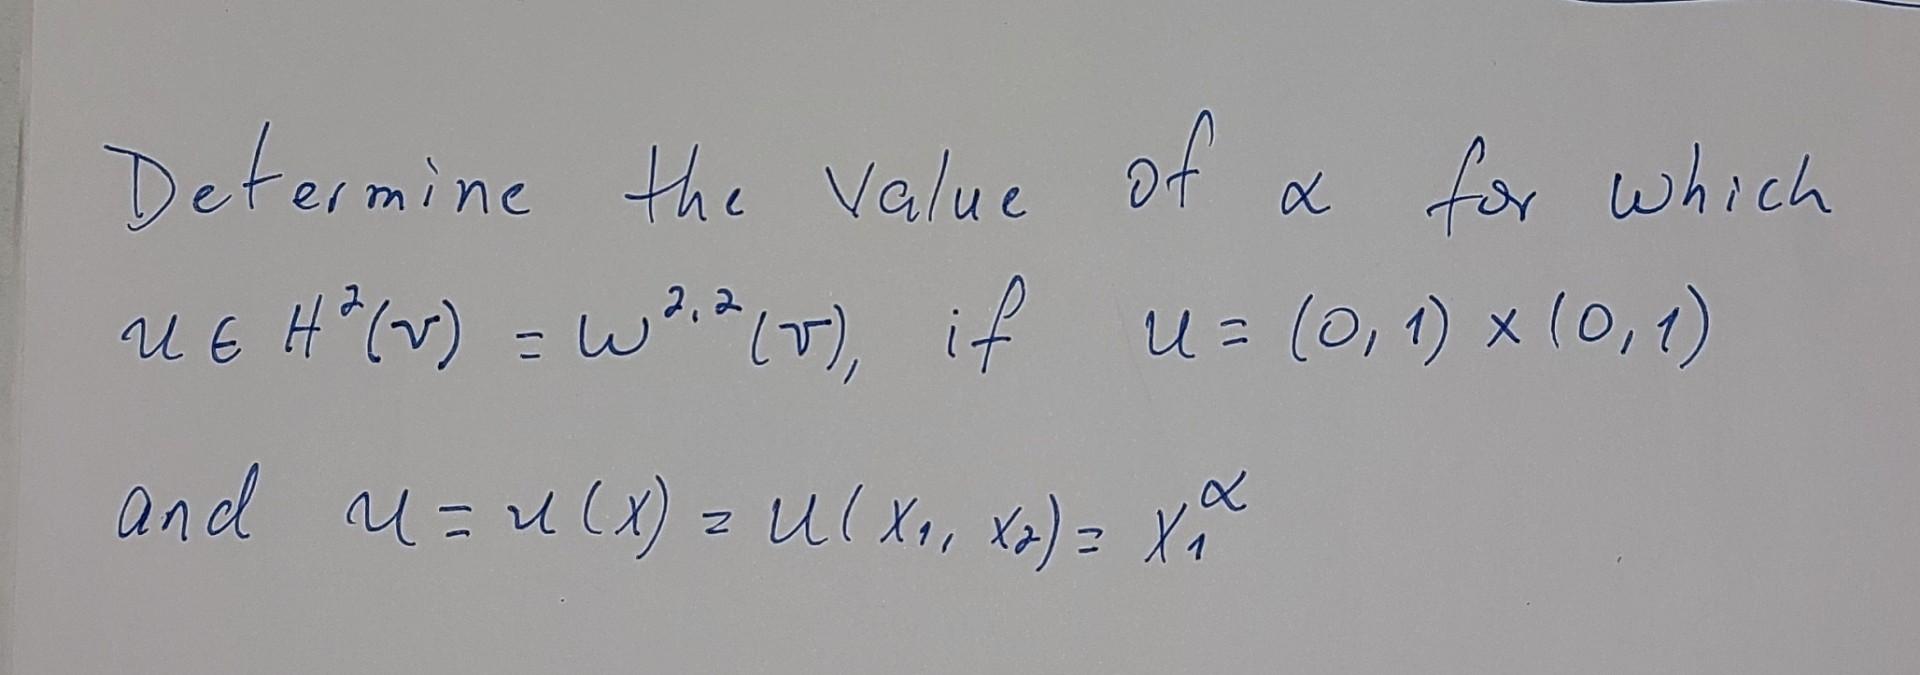 Determine the value of α for which
u ∈ H²(v) = W²,²(v), if u = (0,1) × (0,1)
and u = u(x) = u(x₁, x₂) = x₁^α